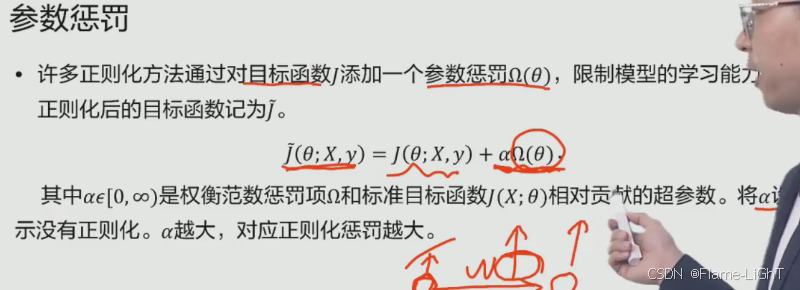 参数惩罚
• 许多正则化方法通过对目标函数J添加一个参数惩罚Ω(θ)，限制模型的学习能力
正则化后的目标函数记为J̃。
J̃(θ;X,y) = J(θ;X,y) + αΩ(θ),
其中αϵ[0,∞)是权衡范数惩罚项Ω和标准目标函数J(X;θ)相对贡献的超参数。将α设
示没有正则化。α越大，对应正则化惩罚越大。
W
CSDN @Flame-LiGHT